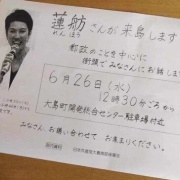 蓮舫さんが来島します
れんほう
都政のことを中心に
街頭でみなさんにお話しします
6月26日(水)
12時30分ごろから
大島町開発総合センター駐車場付近
みなさん、お誘い合わせて お集まりください。